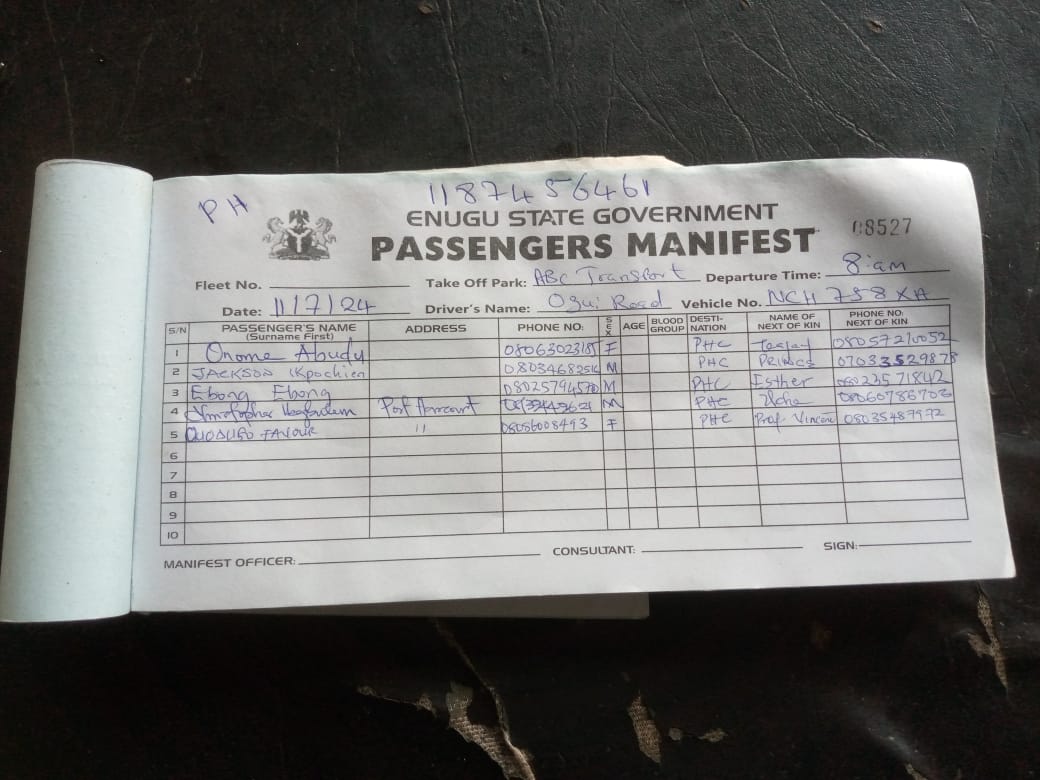 PH 1187456461
ENUGU STATE GOVERNMENT
PASSENGERS MANIFEST 08527
Fleet No. Take Off Park: ABC Transport Departure Time: 8:am
Date: 11/7/24 Driver's Name: Ogui Road Vehicle No. NCH 758 XA
S/N PASSENGER'S NAME (Surname First) ADDRESS PHONE NO: SEX AGE BLOOD GROUP DESTI-NATION NAME OF NEXT OF KIN PHONE NO: NEXT OF KIN
1 Onome Abudu 08063023185 F PHC 08057210052
2 JACKSON M PHC PRINCE
3 Ebong Ebong M PHC Esther 08023571842
4 Port Harcourt M PHC 08060786706
5 FAVOUR " 08056008493 F PHC Prof. 08035487972
6
7
8
9
10
MANIFEST OFFICER: CONSULTANT: SIGN: